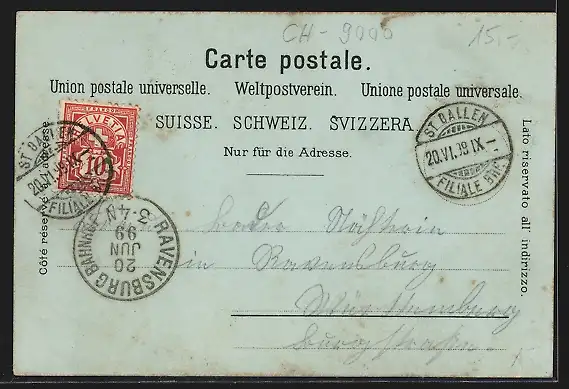 CH-9000
15.-
Carte postale.
Union postale universelle. Weltpostverein. Unione postale universale.
SUISSE. SCHWEIZ. SVIZZERA
Nur für die Adresse.
Côté réservé à l'adresse.
Lato riservato all' indirizzo.
FRANCO
HELVETIA
10
ST GALLEN
20.VI.99 IX-
FILIALE
ST GALLEN
20.VI.99 IX-
FILIALE BHF.
RAVENSBURG BAHNHOF
20
JUN
99
3-4N
in Ravensburg
Württemberg
Burgstraße.